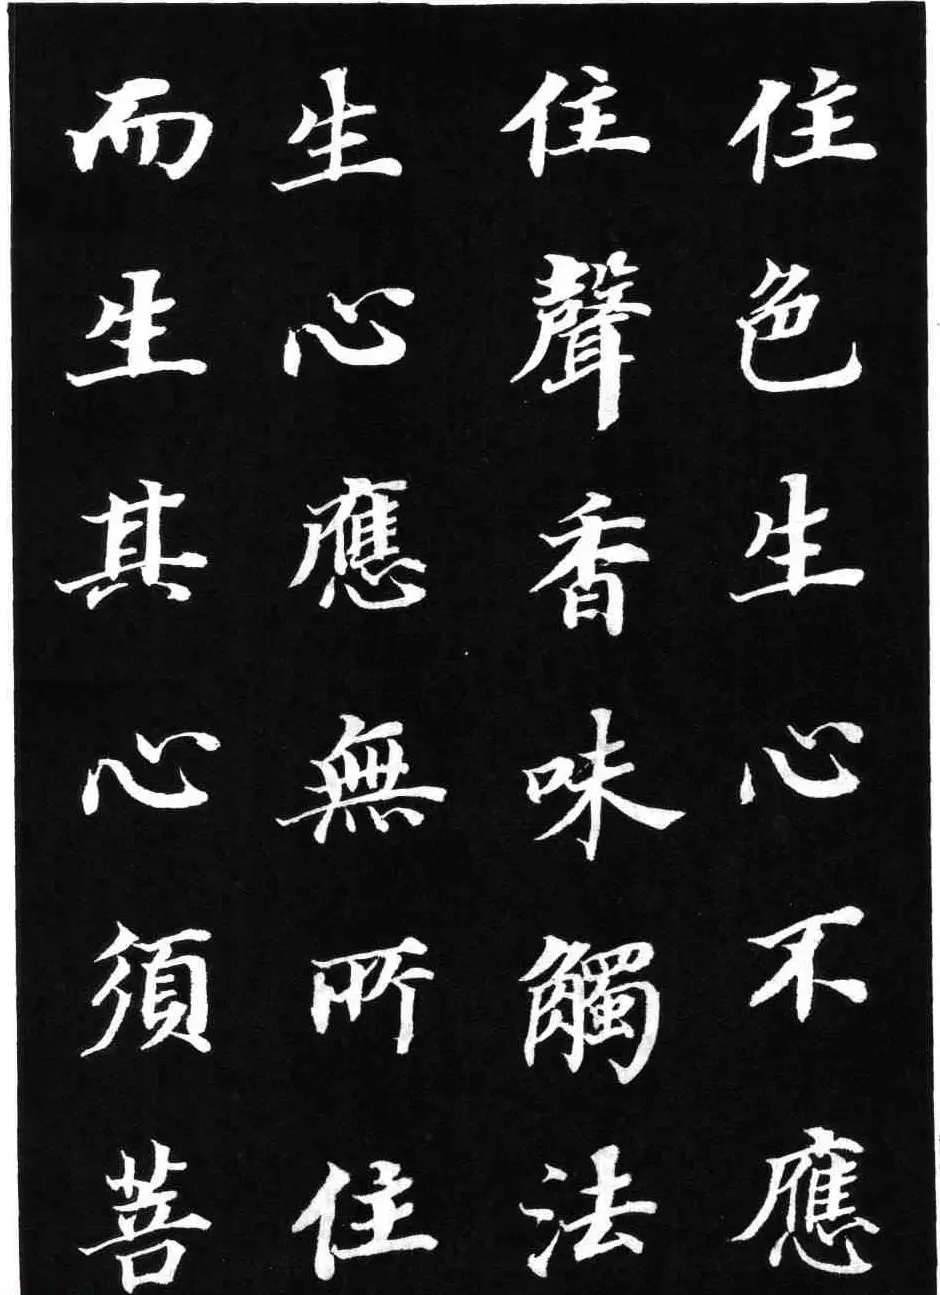 住色生心不應
住聲香味觸法
生心應無所住
而生其心須菩